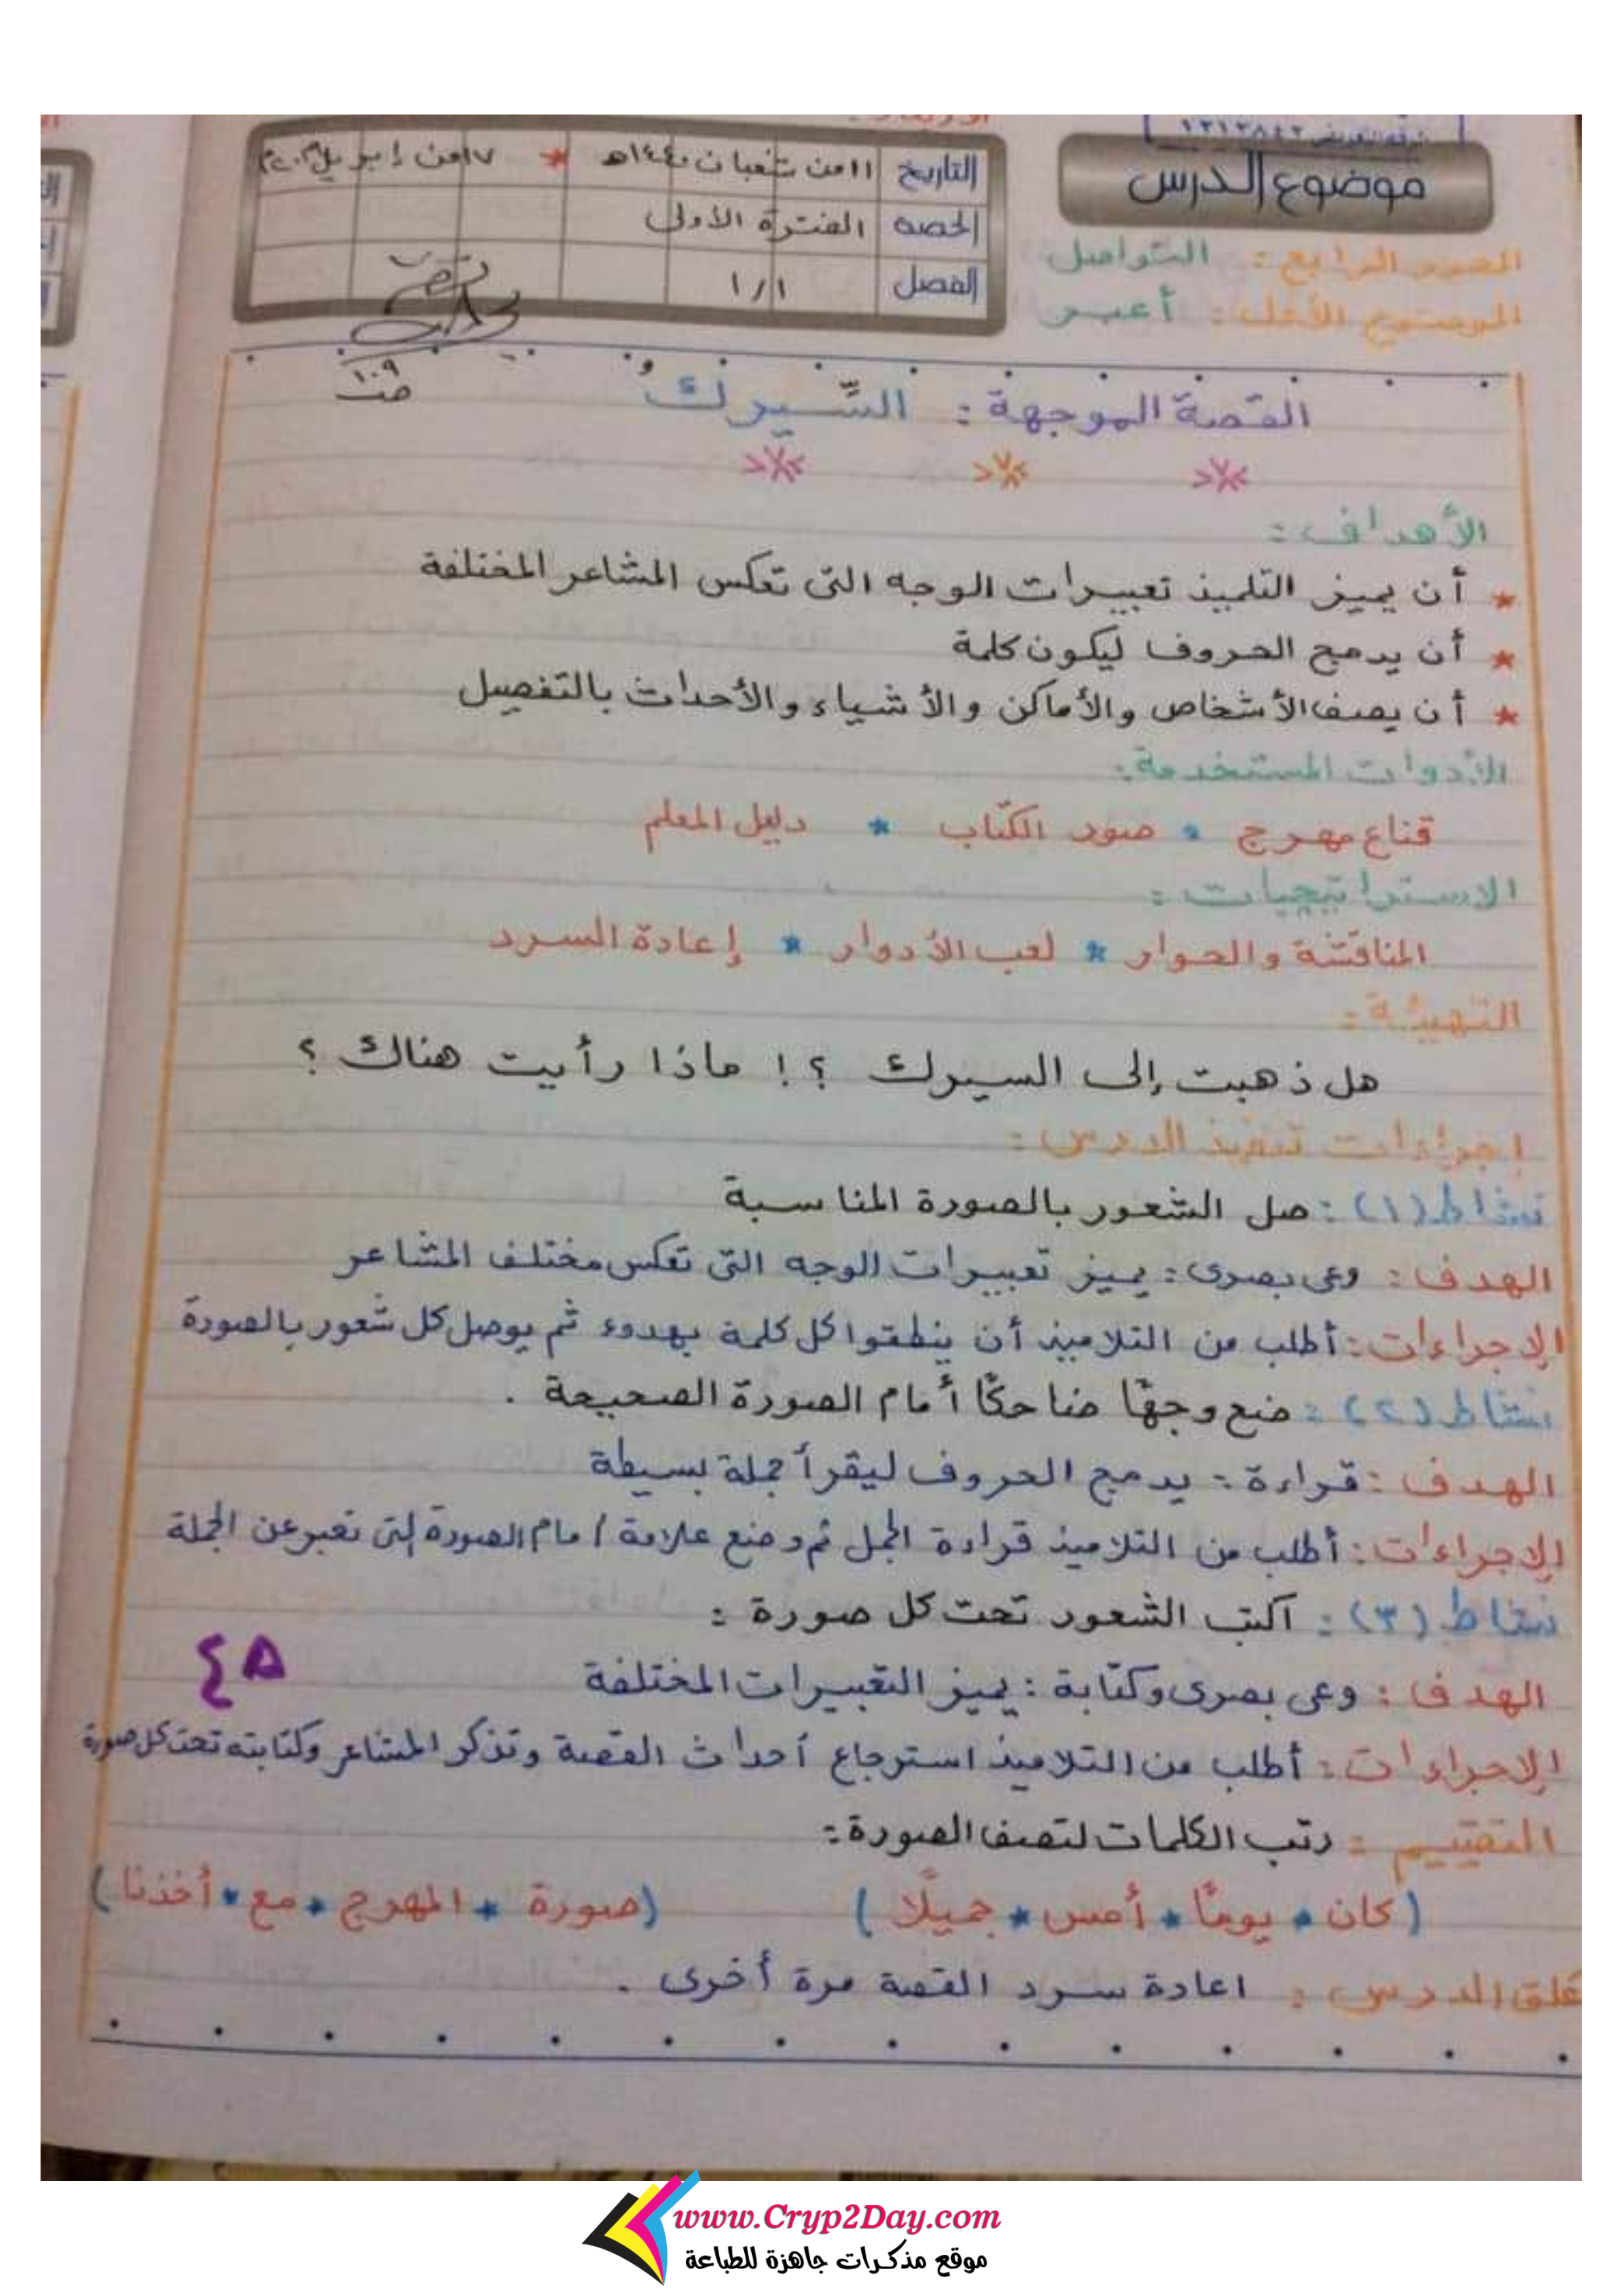 موضوع الدرس
التاريخ ١١ من شعبان ١٤٤٠هـ * ١٧ من إبريل
الحصة الفترة الأولى
الفصل ١/١
المحور الرابع : التواصل
الموضوع الأول : أعبر
القصة الموجهة : السِّيركُ
ص ١٠٩
الأهداف :
* أن يميز التلميذ تعبيرات الوجه التى تعكس المشاعر المختلفة
* أن يدمج الحروف ليكون كلمة
* أن يصف الأشخاص والأماكن والأشياء والأحداث بالتفصيل
الأدوات المستخدمة :
قناع مهرج * صور الكتاب * دليل المعلم
الاستراتيجيات :
المناقشة والحوار * لعب الأدوار * إعادة السرد
التهيئة :
هل ذهبت إلى السيرك ؟! ماذا رأيت هناك ؟
إجراءات تنفيذ الدرس :
نشاط (١) : صل الشعور بالصورة المناسبة
الهدف : وعى بصرى : يميز تعبيرات الوجه التى تعكس مختلف المشاعر
الإجراءات : أطلب من التلاميذ أن ينطقوا كل كلمة بهدوء ثم يوصل كل شعور بالصورة
نشاط (٢) : ضع وجهًا ضاحكًا أمام الصورة الصحيحة .
الهدف : قراءة : يدمج الحروف ليقرأ جملة بسيطة
الإجراءات : أطلب من التلاميذ قراءة الجمل ثم وضع علامة أمام الصورة التى تعبر عن الجملة
نشاط (٣) : اكتب الشعور تحت كل صورة :
الهدف : وعى بصرى وكتابة : يميز التعبيرات المختلفة
٤٥
الإجراءات : أطلب من التلاميذ استرجاع أحداث القصة وتذكر المشاعر وكتابته تحت كل صورة
التقييم : رتب الكلمات لتصف الصورة :
( كان * يومًا * أمس * جميلًا ) ( صورة * المهرج * مع * أخذنا )
غلق الدرس : اعادة سرد القصة مرة أخرى .
www.Cryp2Day.com
موقع مذكرات جاهزة للطباعة